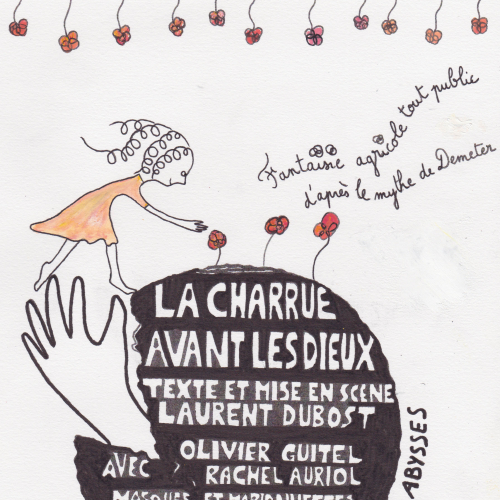 Fantaisie agricole tout public
d'après le mythe de Demeter
LA CHARRUE
AVANT LES DIEUX
TEXTE ET MISE EN SCÈNE
LAURENT DUBOST
AVEC OLIVIER GUITEL
RACHEL AURIOL
MASQUES ET MARIONNETTES
ABYSSES